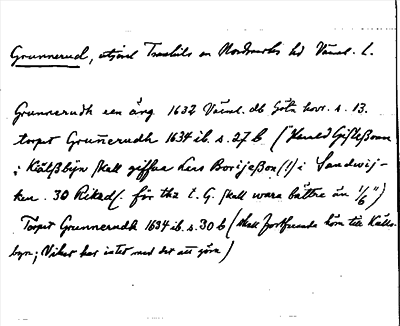 Grunnerud, utjord Torskils en Nordmarks hd Värml. l.
Grunnerudh een äng 1632 Värml. db Göta hovr. s. 13.
torpet Grunnerudh 1634 ib. s. 27 b ("Harald Gisleßonn
i Kiälßbÿn skall giffua Lars Boriseßon (!) i Sandwij-
ken. 30 Rikzd. för thz t. G. skall wara bättre än 1/6")
Torpet Grunnerudh 1634 ib. s. 30 b (skall fortfarande höra till Källs-
byn; Viker har intet med det att göra)